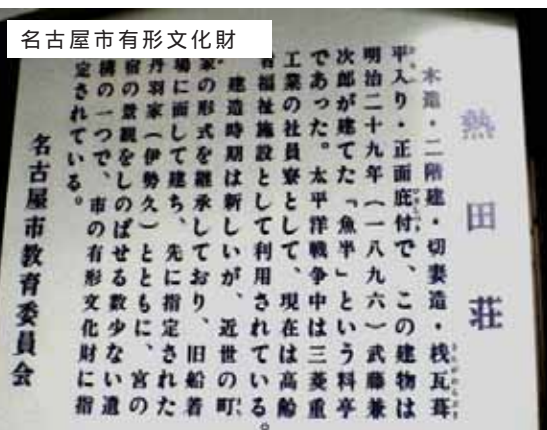 名古屋市有形文化財
熱田荘
木造・二階建・切妻造・桟瓦葺
平入り・正面庇付で、この建物は
明治二十九年（一八九六）武藤兼
次郎が建てた「魚半」という料亭
であった。太平洋戦争中は三菱重
工業の社員寮として、現在は高齢
者福祉施設として利用されている。
建造時期は新しいが、近世の町
家の形式を継承しており、旧船着
場に面して建ち、先に指定された
丹羽家（伊勢久）とともに、宮の
宿の景観をしのばせる数少ない遺
構の一つで、市の有形文化財に指
定されている。
名古屋市教育委員会